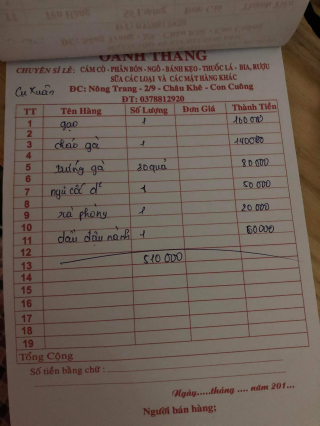 OANH THẮNG
CHUYÊN SỈ LẺ: CÁM CÒ - PHÂN BÓN - NGÔ - BÁNH KẸO - THUỐC LÁ - BIA, RƯỢU
SỮA CÁC LOẠI VÀ CÁC MẶT HÀNG KHÁC
Cu Xuân
ĐC: Nông Trang - 2/9 - Châu Khê - Con Cuông
ĐT: 0378812920
TT Tên Hàng Số Lượng Đơn Giá Thành Tiền
1 gạo 1 100 000
2
3 cháo gà 1 140 000
4
5 trứng gà 20 quả 80 000
6
7 ngũ cốc 1 50 000
8
9 xà phòng 1 20 000
10
11 dầu đậu nành 1 60 000
12
13 510 000
14
15
16
17
18
19
Tổng Cộng
Số tiền bằng chữ:
Ngày.....tháng .... năm 201...
Người bán hàng: